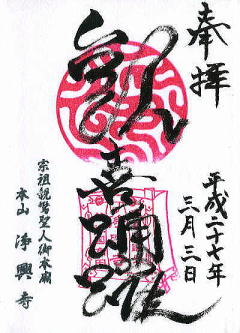 奉拝
平成二十七年
三月三日
歓喜踊躍
宗祖親鸞聖人御本廟
本山 浄興寺